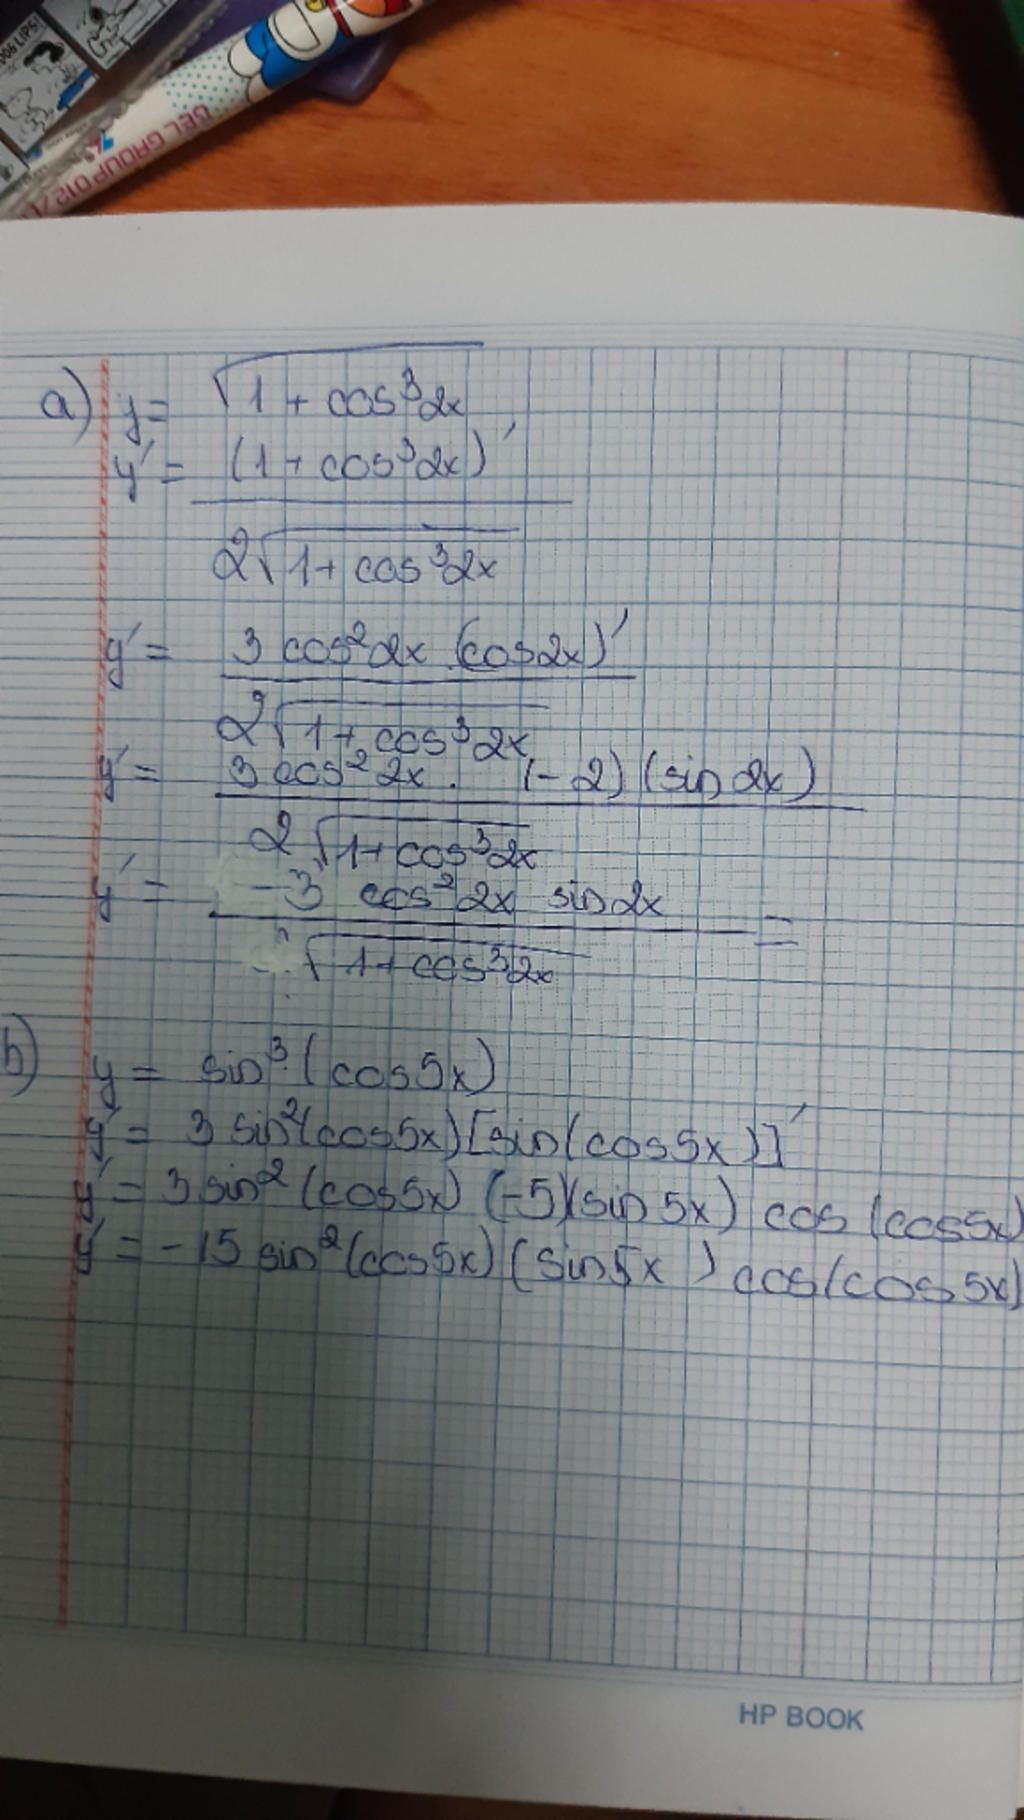 GEL GROUP 012
a) y = √1 + cos³2x
y' = (1 + cos³2x)'
2√1 + cos³2x
y' = 3 cos²2x (cos2x)'
2√1 + cos³2x
y' = 3 cos²2x . (-2) (sin 2x)
2 √1 + cos³2x
y' = -3 cos² 2x sin 2x =
√1 + cos³2x
b) y = sin³ (cos5x)
y' = 3 sin²(cos5x) [sin(cos5x)]'
y' = 3 sin² (cos5x) (-5)(sin 5x) cos (cos5x)
y' = -15 sin²(cos5x) (sin5x) cos(cos5x)
HP BOOK